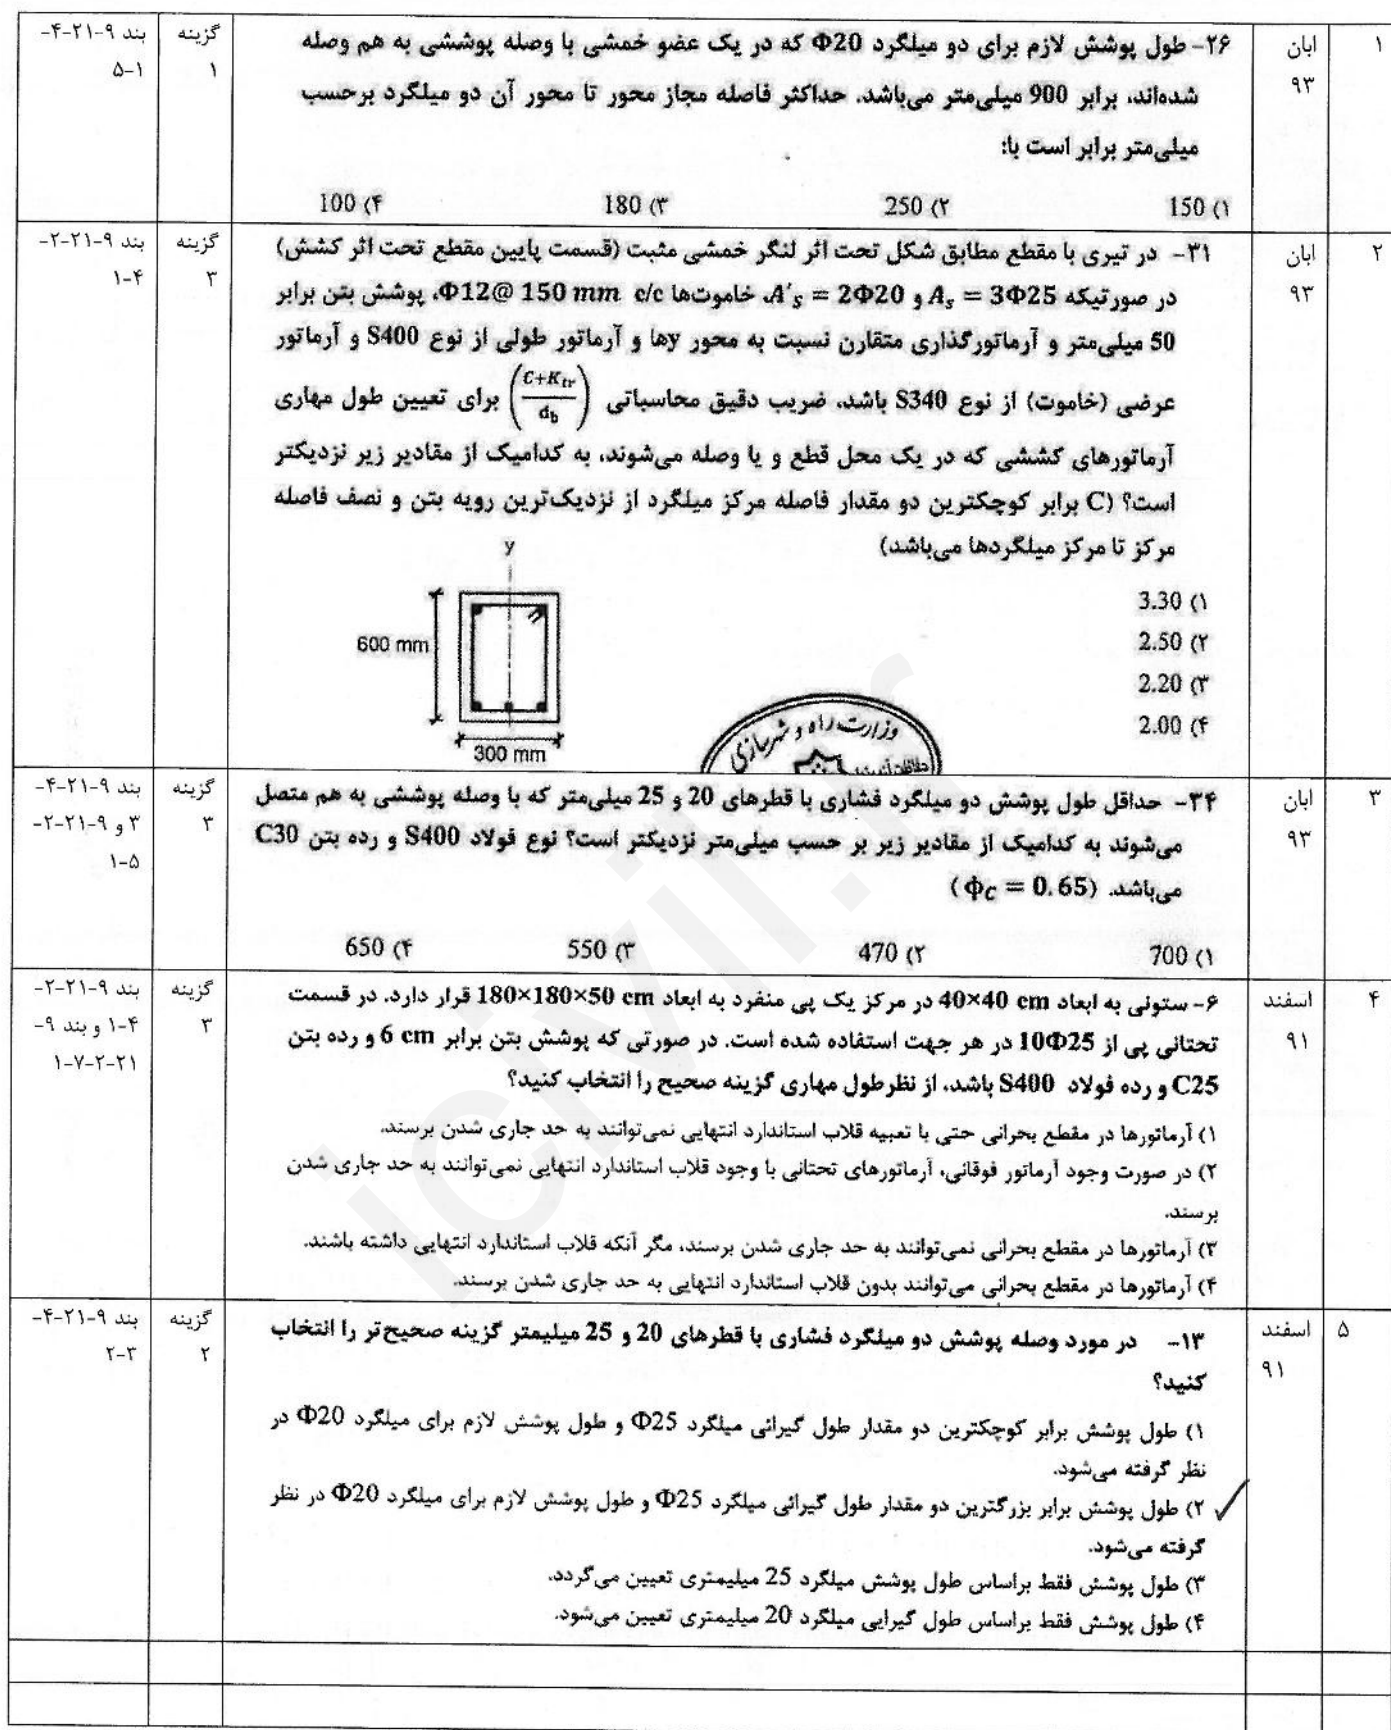 ۱
ابان
۹۳
۲۶- طول پوشش لازم برای دو میلگرد Φ20 که در یک عضو خمشی با وصله پوششی به هم وصله
شده‌اند، برابر 900 میلی‌متر می‌باشد. حداکثر فاصله مجاز محور تا محور آن دو میلگرد برحسب
میلی‌متر برابر است با:
۱) 150 ۲) 250 ۳) 180 ۴) 100
گزینه
۱
بند ۹-۲۱-۴-
۵-۱
۲
ابان
۹۳
۳۱- در تیری با مقطع مطابق شکل تحت اثر لنگر خمشی مثبت (قسمت پایین مقطع تحت اثر کشش)
در صورتیکه A_s = 3Φ25 و A'_s = 2Φ20، خاموت‌ها Φ12@ 150 mm c/c، پوشش بتن برابر
50 میلی‌متر و آرماتورگذاری متقارن نسبت به محور yها و آرماتور طولی از نوع S400 و آرماتور
عرضی (خاموت) از نوع S340 باشد، ضریب دقیق محاسباتی (C+K_tr / d_b) برای تعیین طول مهاری
آرماتورهای کششی که در یک محل قطع و یا وصله می‌شوند، به کدامیک از مقادیر زیر نزدیکتر
است؟ (C برابر کوچکترین دو مقدار فاصله مرکز میلگرد از نزدیک‌ترین رویه بتن و نصف فاصله
مرکز تا مرکز میلگردها می‌باشد)
۱) 3.30
۲) 2.50
۳) 2.20
۴) 2.00
y
600 mm
300 mm
وزارت راه و شهرسازی
گزینه
۳
بند ۹-۲۱-۲-
۴-۱
۳
ابان
۹۳
۳۴- حداقل طول پوشش دو میلگرد فشاری با قطرهای 20 و 25 میلی‌متر که با وصله پوششی به هم متصل
می‌شوند به کدامیک از مقادیر زیر بر حسب میلی‌متر نزدیکتر است؟ نوع فولاد S400 و رده بتن C30
می‌باشد. (ϕ_C = 0.65)
۱) 700 ۲) 470 ۳) 550 ۴) 650
گزینه
۳
بند ۹-۲۱-۴-
۳ و ۹-۲۱-۲-
۵-۱
۴
اسفند
۹۱
۶- ستونی به ابعاد 40×40 cm در مرکز یک پی منفرد به ابعاد 180×180×50 cm قرار دارد. در قسمت
تحتانی پی از 10Φ25 در هر جهت استفاده شده است. در صورتی که پوشش بتن برابر 6 cm و رده بتن
C25 و رده فولاد S400 باشد، از نظرطول مهاری گزینه صحیح را انتخاب کنید؟
۱) آرماتورها در مقطع بحرانی حتی با تعبیه قلاب استاندارد انتهایی نمی‌توانند به حد جاری شدن برسند.
۲) در صورت وجود آرماتور فوقانی، آرماتورهای تحتانی با وجود قلاب استاندارد انتهایی نمی‌توانند به حد جاری شدن
برسند.
۳) آرماتورها در مقطع بحرانی نمی‌توانند به حد جاری شدن برسند، مگر آنکه قلاب استاندارد انتهایی داشته باشند.
۴) آرماتورها در مقطع بحرانی می‌توانند بدون قلاب استاندارد انتهایی به حد جاری شدن برسند.
گزینه
۳
بند ۹-۲۱-۲-
۴-۱ و بند ۹-
۲۱-۲-۷-۱
۵
اسفند
۹۱
۱۳- در مورد وصله پوشش دو میلگرد فشاری با قطرهای 20 و 25 میلیمتر گزینه صحیح‌تر را انتخاب
کنید؟
۱) طول پوشش برابر کوچکترین دو مقدار طول گیرائی میلگرد Φ25 و طول پوشش لازم برای میلگرد Φ20 در
نظر گرفته می‌شود.
۲) طول پوشش برابر بزرگترین دو مقدار طول گیرائی میلگرد Φ25 و طول پوشش لازم برای میلگرد Φ20 در نظر
گرفته می‌شود.
۳) طول پوشش فقط براساس طول پوشش میلگرد 25 میلیمتری تعیین می‌گردد.
۴) طول پوشش فقط براساس طول گیرایی میلگرد 20 میلیمتری تعیین می‌شود.
گزینه
۲
بند ۹-۲۱-۴-
۳-۲
icivil.ir